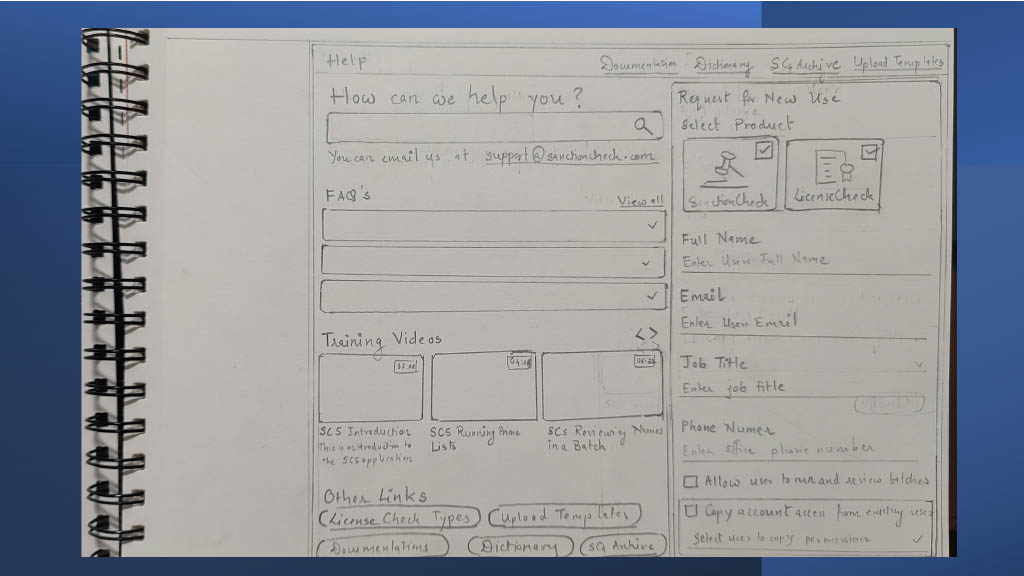 Help
Documentation Dictionary SC4 Archive Upload Templates
How can we help you?
You can email us at support@sanctioncheck.com
FAQ's View all
Training Videos < >
04:08
SC5 Introduction
This is an introduction to
the SC5 application
SC5 Running Name
Lists
SC5 Reviewing Names
in a Batch
Other Links
License Check Types Upload Templates
Documentations Dictionary SC4 Archive
Request for New Use
Select Product
SanctionCheck LicenseCheck
Full Name
Enter User Full Name
Email
Enter User Email
Job Title
Enter job title
Phone Numer
Enter office phone number
Allow user to run and review batches
Copy account access from existing user
Select user to copy permission